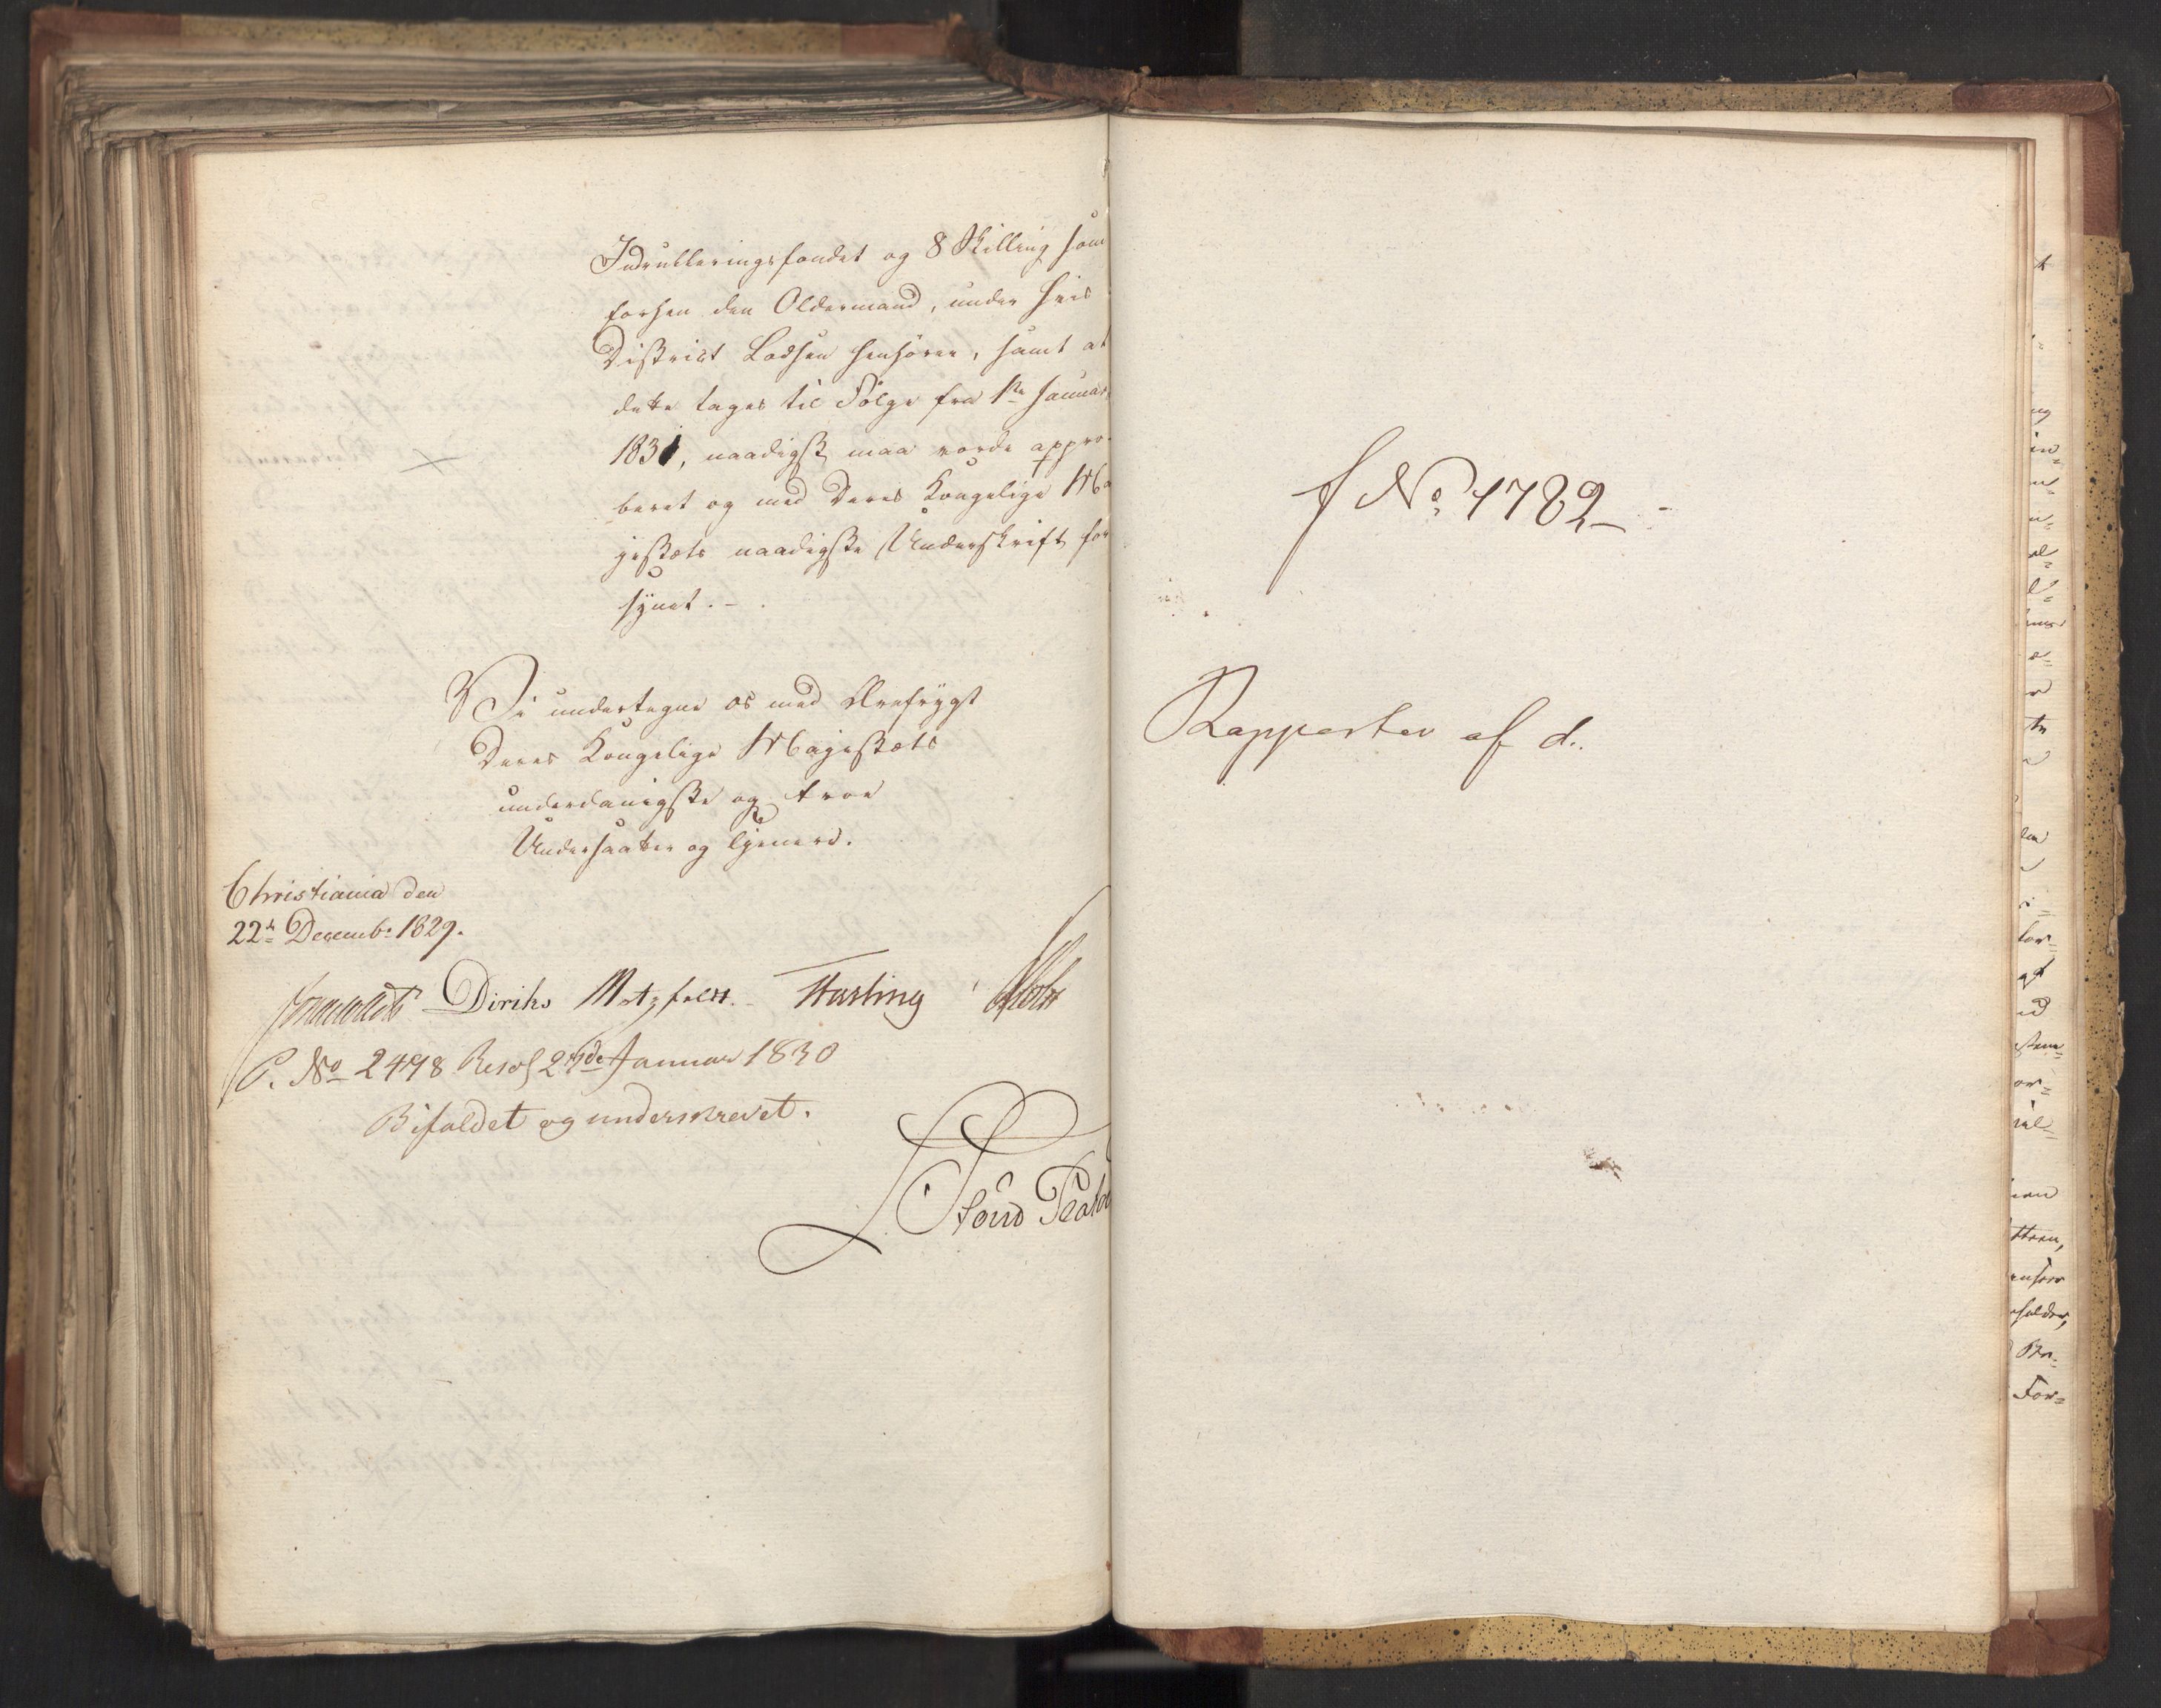 Indrulleringsfondet og 8 Skilling som
forhen den Oldermand, under hvis
District Lodsen henhörer, samt at
dette tages til Fölge fra 1ste Januar
1831, naadigst maa vorde appro-
beret og med Deres Kongelige Ma
jestæts naadigste Underskrift for
synet. -
Vi undertegne os med Ærefrygt
Deres Kongelige Majestæts
underdanigste og troe
Undersaatter og tjenere.
Christiania den
22de Decembr 1829.
Diriks Motzfeldt. Fasting Holst
P. No 2498 Resol Januar 1830
Bifaldet og underskrevet.
No 1782
Rapporter af d.